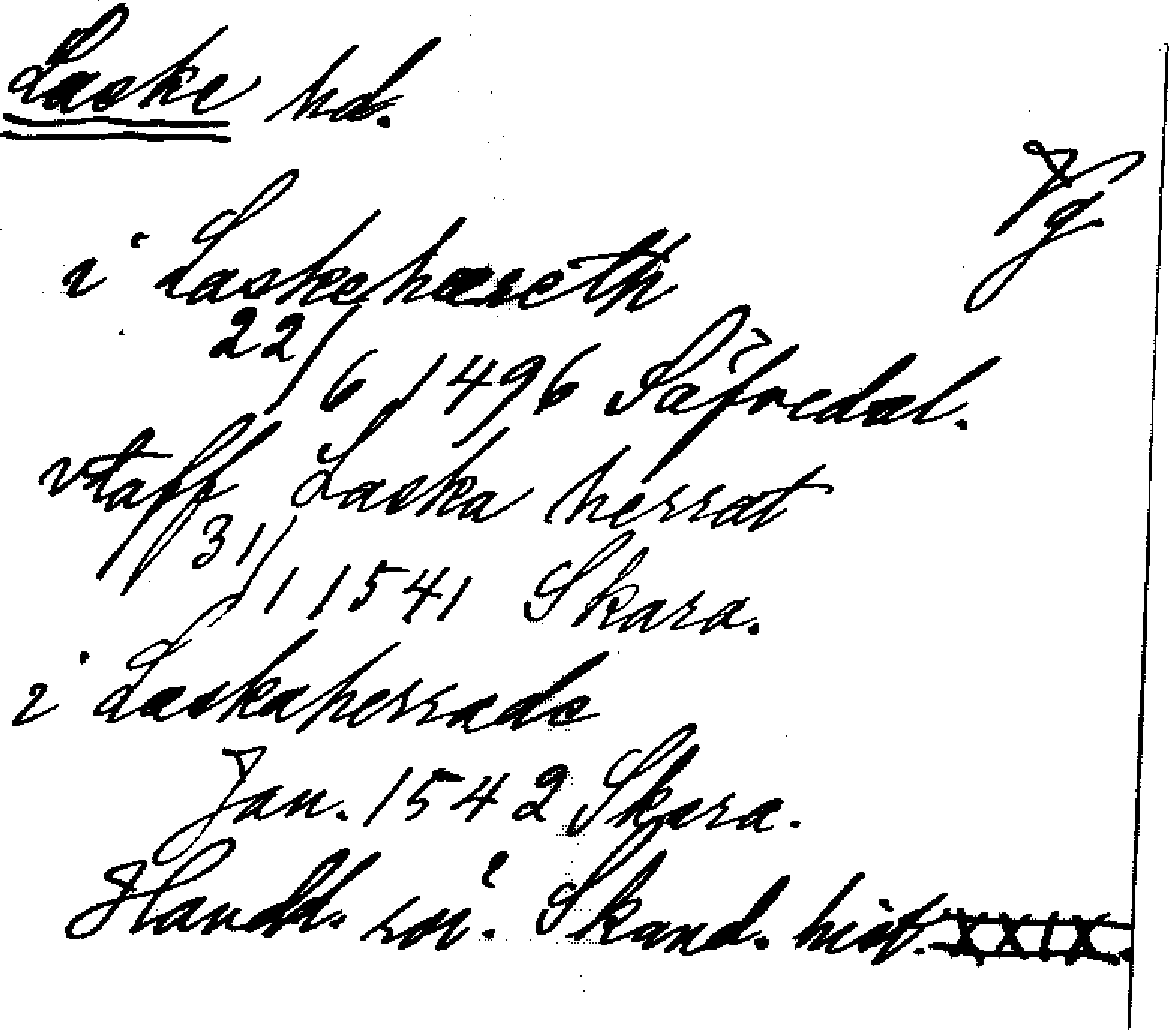 Laske hd.
Vg.
i Laskehæreth
22/6 1496 Säfvedal.
vtaff Laska herrat
31/1 1541 Skara.
i Laskaherrade
Jan. 1542 Skara.
Handl. rör. Skand. hist. XXIX.